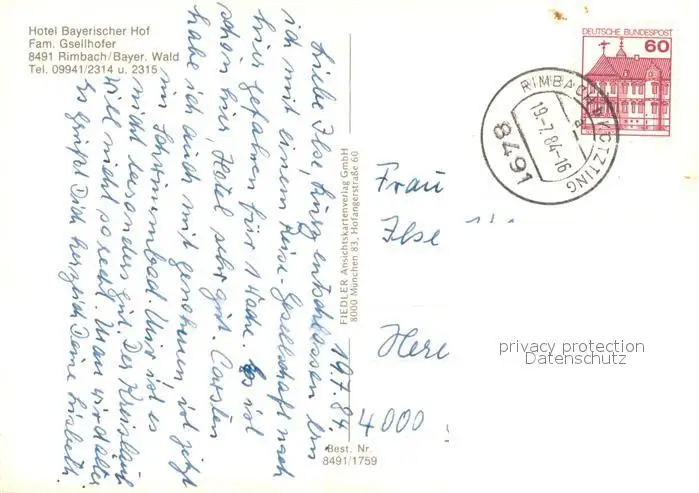 Hotel Bayerischer Hof
Fam. Gsellhofer
8491 Rimbach/Bayer. Wald
Tel. 09941/2314 u. 2315
19.7.84
Liebe Ilse, kurz entschlossen bin
ich mit einem Reise-Gesellschaft nach
hier gefahren für 1 Woche. Es ist
schön hier, Hotel sehr gut. Carsten
habe ich auch mit genommen ist jetzt
im Schwimmbad. Mir ist es
nicht besonders gut. Der Kreislauf
will nicht so recht. Man wird älter
Es grüßt Dich herzlich Deine Lisbeth.
FIEDLER Ansichtskartenverlag GmbH
8000 München 83, Hofangerstraße 60
Best. Nr.
8491/1759
DEUTSCHE BUNDESPOST
60
RIMBACH KÖTZTING
a
19.-7.84-16
8491
Frau
Ilse
Here
4000
privacy protection
Datenschutz